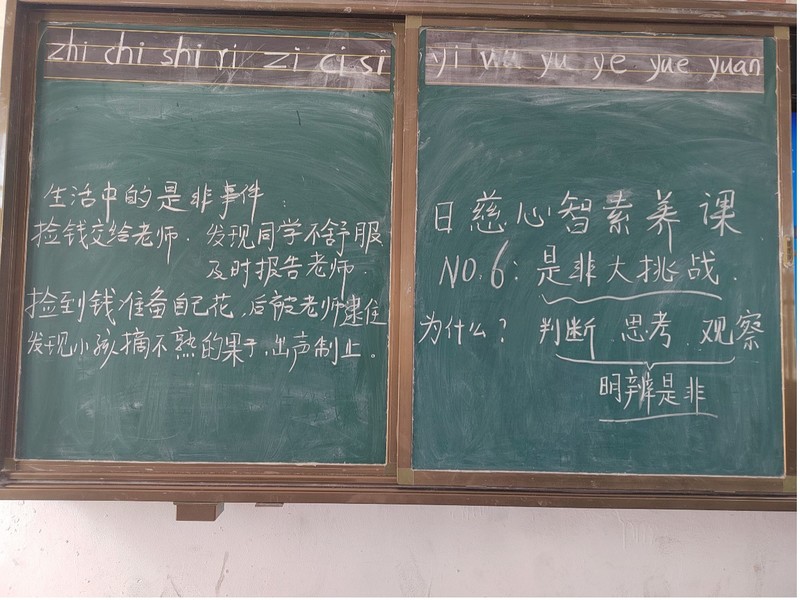 zhi chi shi ri zi ci si
生活中的是非事件：
捡钱交给老师. 发现同学不舒服
及时报告老师.
捡到钱准备自己花,后被老师逮住
发现小孩摘不熟的果子,出声制止。
yi wu yu ye yue yuan
日慈心智素养课
NO.6：是非大挑战.
为什么？ 判断 思考 观察
明辨是非